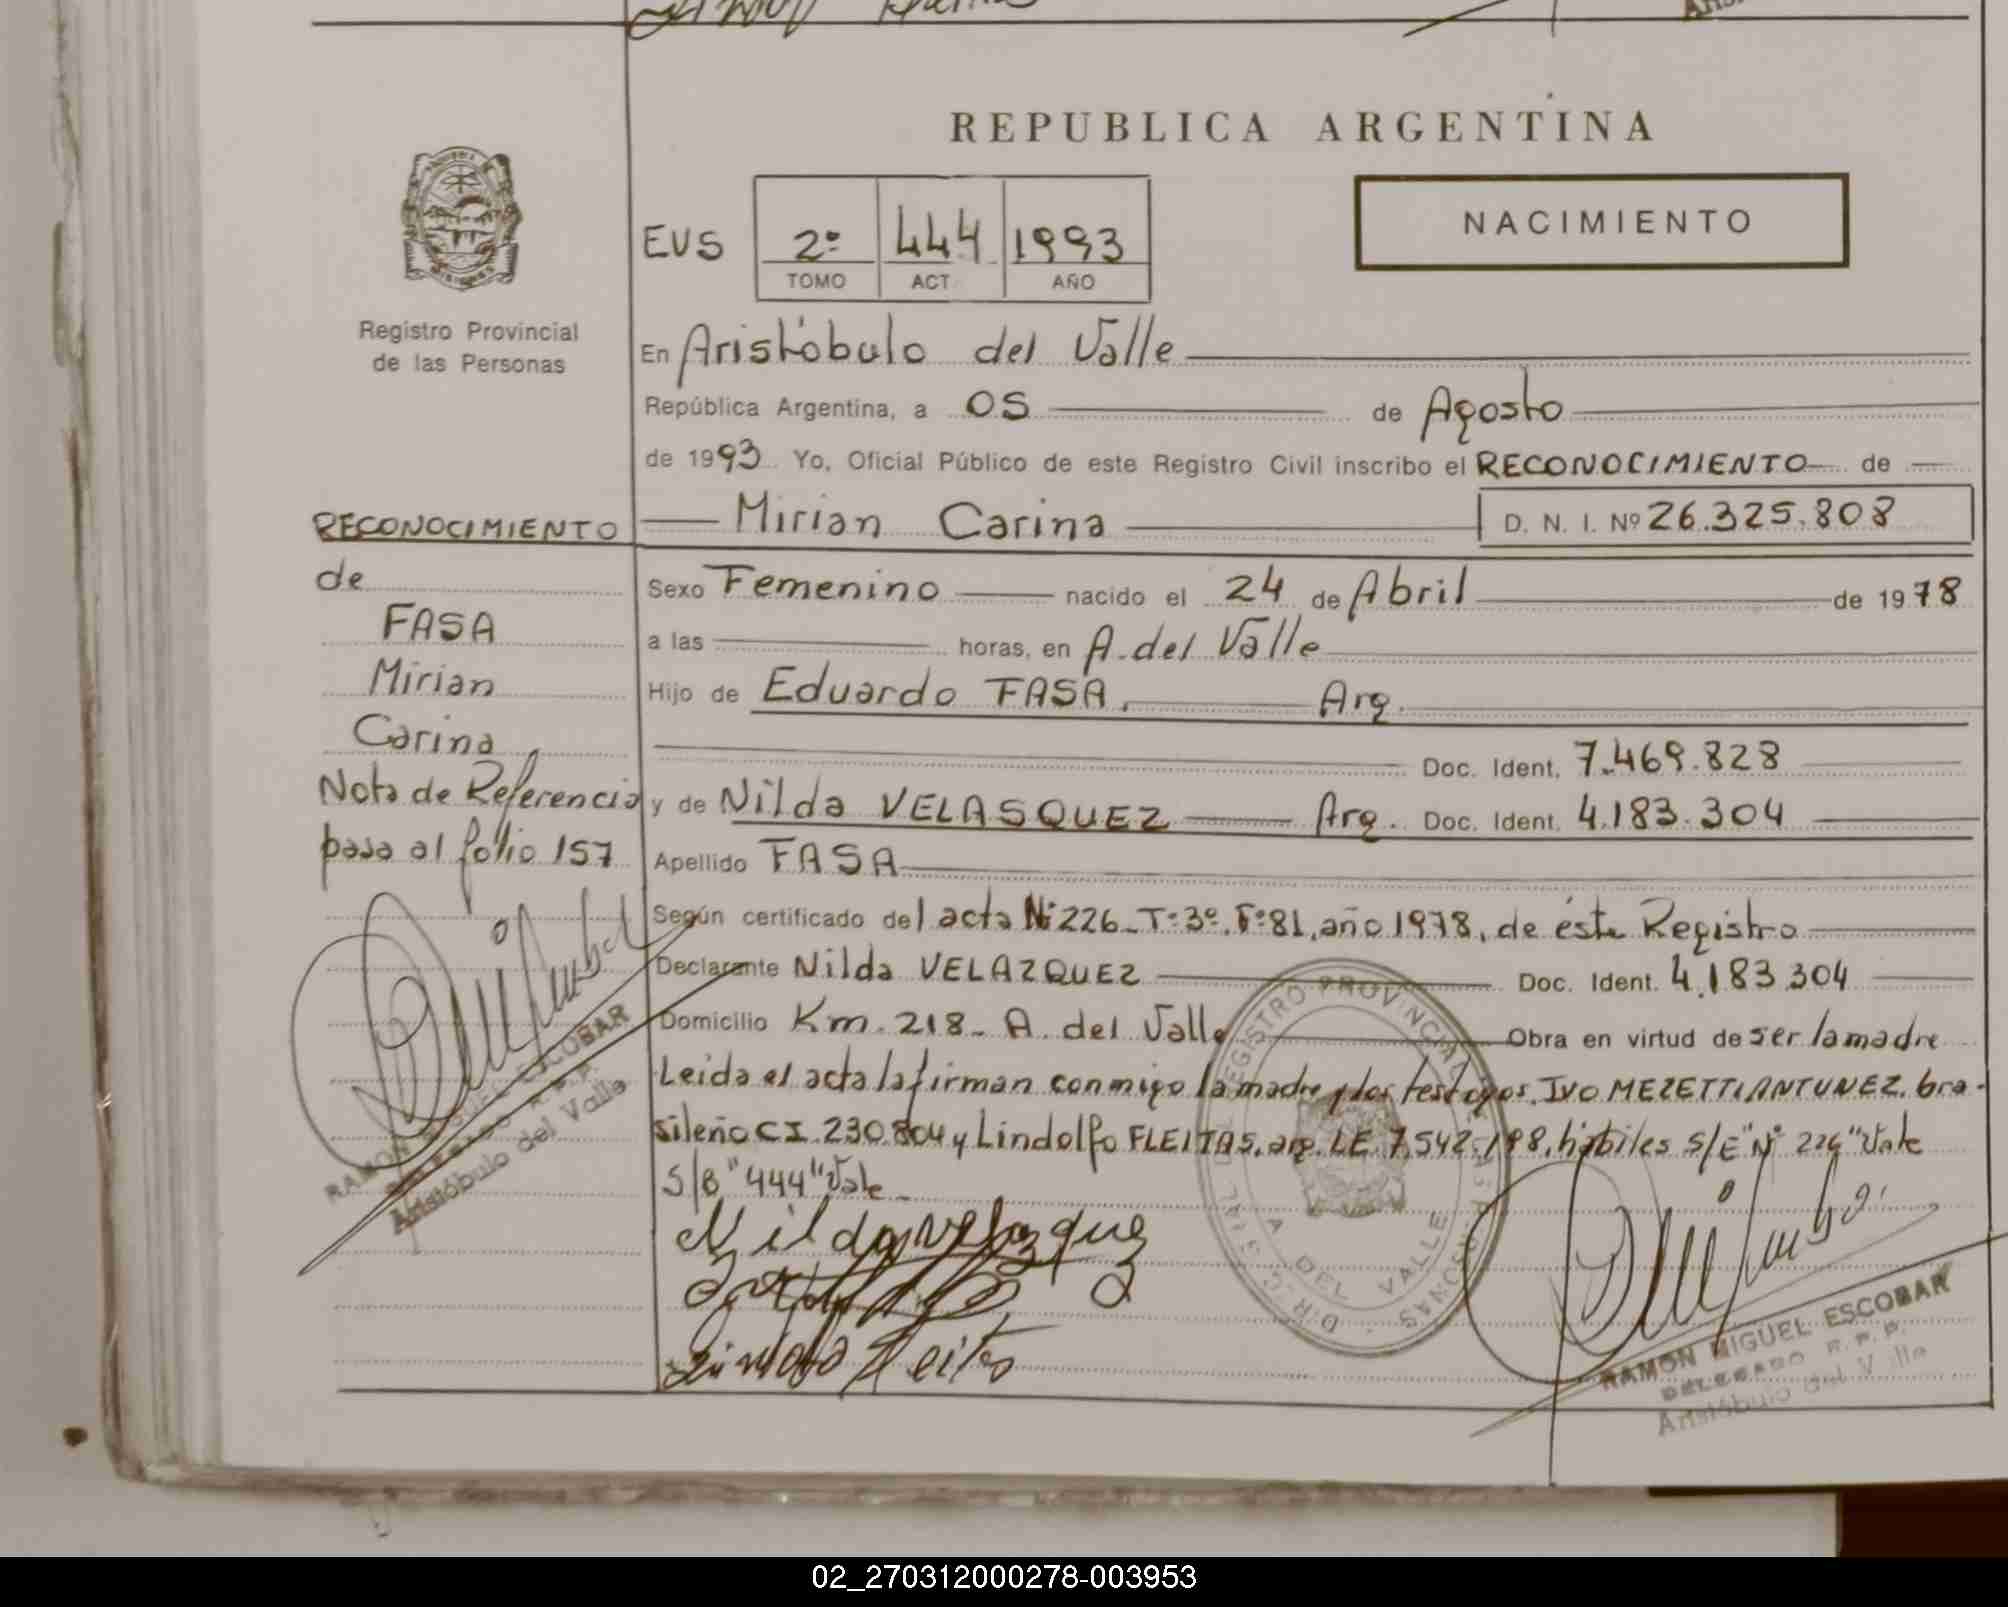 REPUBLICA ARGENTINA
NACIMIENTO
EVS 2º 444 1993
TOMO ACT. AÑO
Registro Provincial
de las Personas
En Aristóbulo del Valle
República Argentina, a 05 de Agosto
de 1993 Yo, Oficial Público de este Registro Civil inscribo el RECONOCIMIENTO de
Mirian Carina D. N. I. Nº 26.325.808
RECONOCIMIENTO
de
FASA
Mirian
Carina
Nota de Referencia
pasa al folio 157
RAMON MIGUEL ESCOBAR
DELEGADO R.P.P.
Aristóbulo del Valle
Sexo Femenino nacido el 24 de Abril de 1978
a las horas, en A. del Valle
Hijo de Eduardo FASA. Arg.
Doc. Ident. 7.469.828
y de Nilda VELASQUEZ Arg. Doc. Ident. 4.183.304
Apellido FASA
Según certificado del acta Nº 226_ Tº 3º. Fº 81, año 1978, de éste Registro
Declarante Nilda VELAZQUEZ Doc. Ident. 4.183.304
Domicilio Km. 218_ A. del Valle Obra en virtud de ser la madre
Leida el acta la firman conmigo la madre y los testigos. IVO MEZETTI ANTUNEZ, bra-
sileño CI. 230.804 y Lindolfo FLEITAS, arg. LE. 7.542.198, hábiles S/E "Nº 226" Vale
S/B "444" Vale_
Nilda velazquez
REGISTRO PROVINCIAL DE LAS PERSONAS
A. DEL VALLE
RAMON MIGUEL ESCOBAR
DELEGADO R.P.P.
Aristóbulo del Valle
02_270312000278-003953